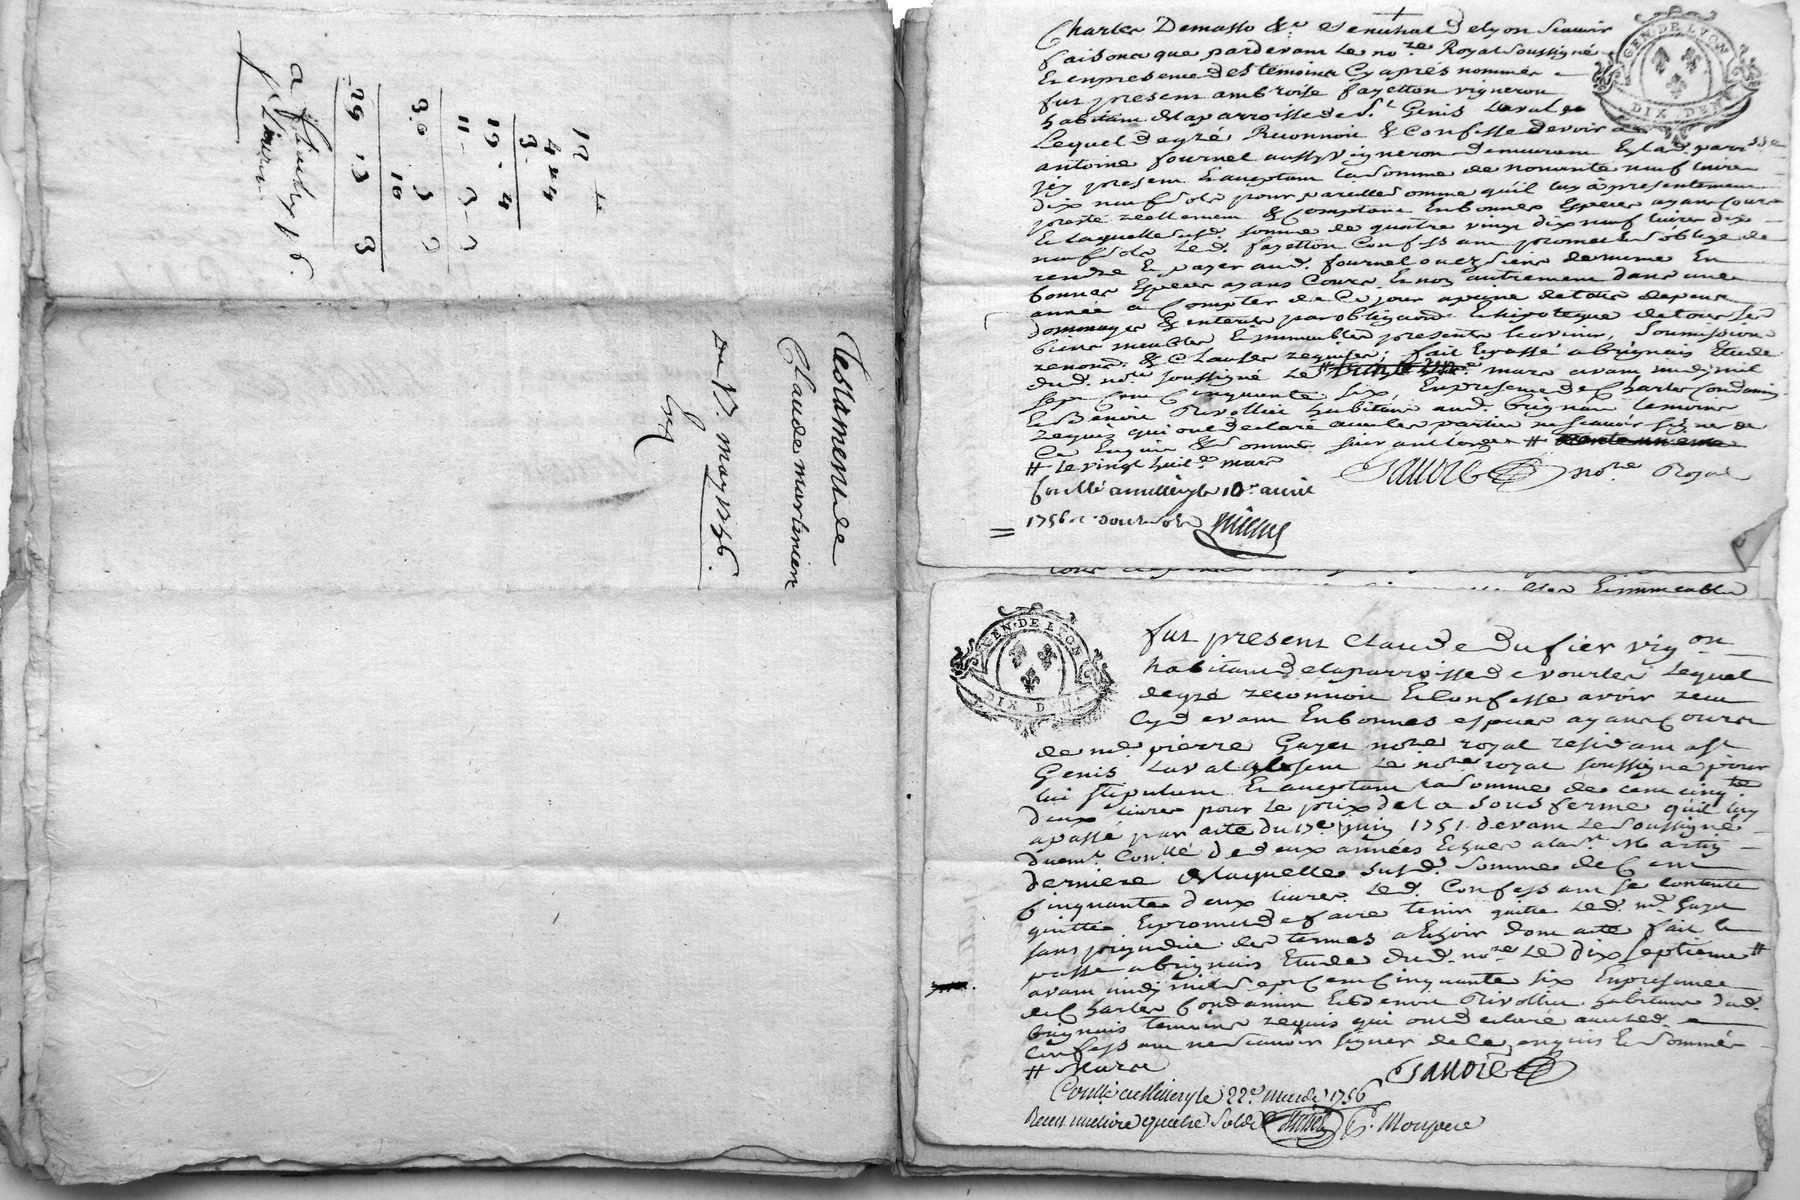 12
424
3
19 - 4
11 - 3 - 3
3,0 3 3
10
29 13 3
a
Testament de
Claude martiniere
Du 13. may 1756.
Charles Demasso &c. Senechal de lyon scavoir
faisons que pardevant Le no.re Royal soussigné
Et en presence des temoins Cy après nommés
fut present ambroise fayetton vigneron
habitant de la parroisse de St. Genis Laval
Lequel de gré Reconnoit & Confesse devoir a
antoine fournel aussy vigneron demeurant
present & acceptant la somme de nonante neuf livres
dix neuf sols pour pareille somme qu'il luy a presentement
presté reellement & comptant En bonnes Especes ayant Cours
Et laquelle susd. somme de quatre vingt dix neuf livres dix
neuf sols Led. fayetton Confessant promet & s'oblige de
rendre & payer aud. fournel ou ez siens de meme En
bonnes Especes ayans Cours Et non autrement dans une
année a Compter de Ce jour a peine de tous depens
dommages & interets par obligaon. & hipoteque de tous ses
biens meubles & immeubles presents & avenir, soumissions
renonc. & Clauses requises; fait & passé a brignais Etude
dud. no.re soussigné Le # mars avant midy mil
sept Cent Cinquante six, En presence de Charles Condamin
& Benoit Rivollier habitans aud. brignais temoins
requis qui ont declaré avec les parties ne scavoir signer de
Ce Enquis & sommés suivant l'ordce #
# le vingt huit.e mars
Savoie no.re Royal
Conllé a millery le 10e. avril
1756 r. douze sols
GEN. DE LYON
DIX DEN.
des & immeubles
GEN. DE LYON
DIX DEN.
fut present Claude Dufier vig.on
habitant de la parroisse de vourles Lequel
de gré reconnoit & Confesse avoir receu
Cy devant En bonnes especes ayans Cours
de me. pierre Gayet no.re royal residant a St
Genis Laval absent Le no.re royal soussigné pour
lui stipulant & acceptant la somme de cent cinq.te
deux livres pour le prix de la sous ferme qu'il luy
a passé par acte du 17e juin 1751 devant Le soussigné
duemt. Conllé de deux années Echues a la St. Martin
derniere de laquelle susd. somme de Cent
Cinquante deux livres Led. Confessant se Contente
quitte & promet de faire tenir quitte Led. me. Gayet
sans prejudice des termes a Echoir dont acte fait &
passé a brignais Etude dud. no.re Le dix septieme #
avant midy mil sept Cent Cinquante six En presence
de Charles Condamin & Benoit Rivollier habitans dud.
brignais temoins requis qui ont declaré avec led.
Confessant ne scavoir signer de Ce enquis & sommés
# Mars
Savoie
Conllé a Millery le 22e. mars 1756
Receu une livre quatre sols